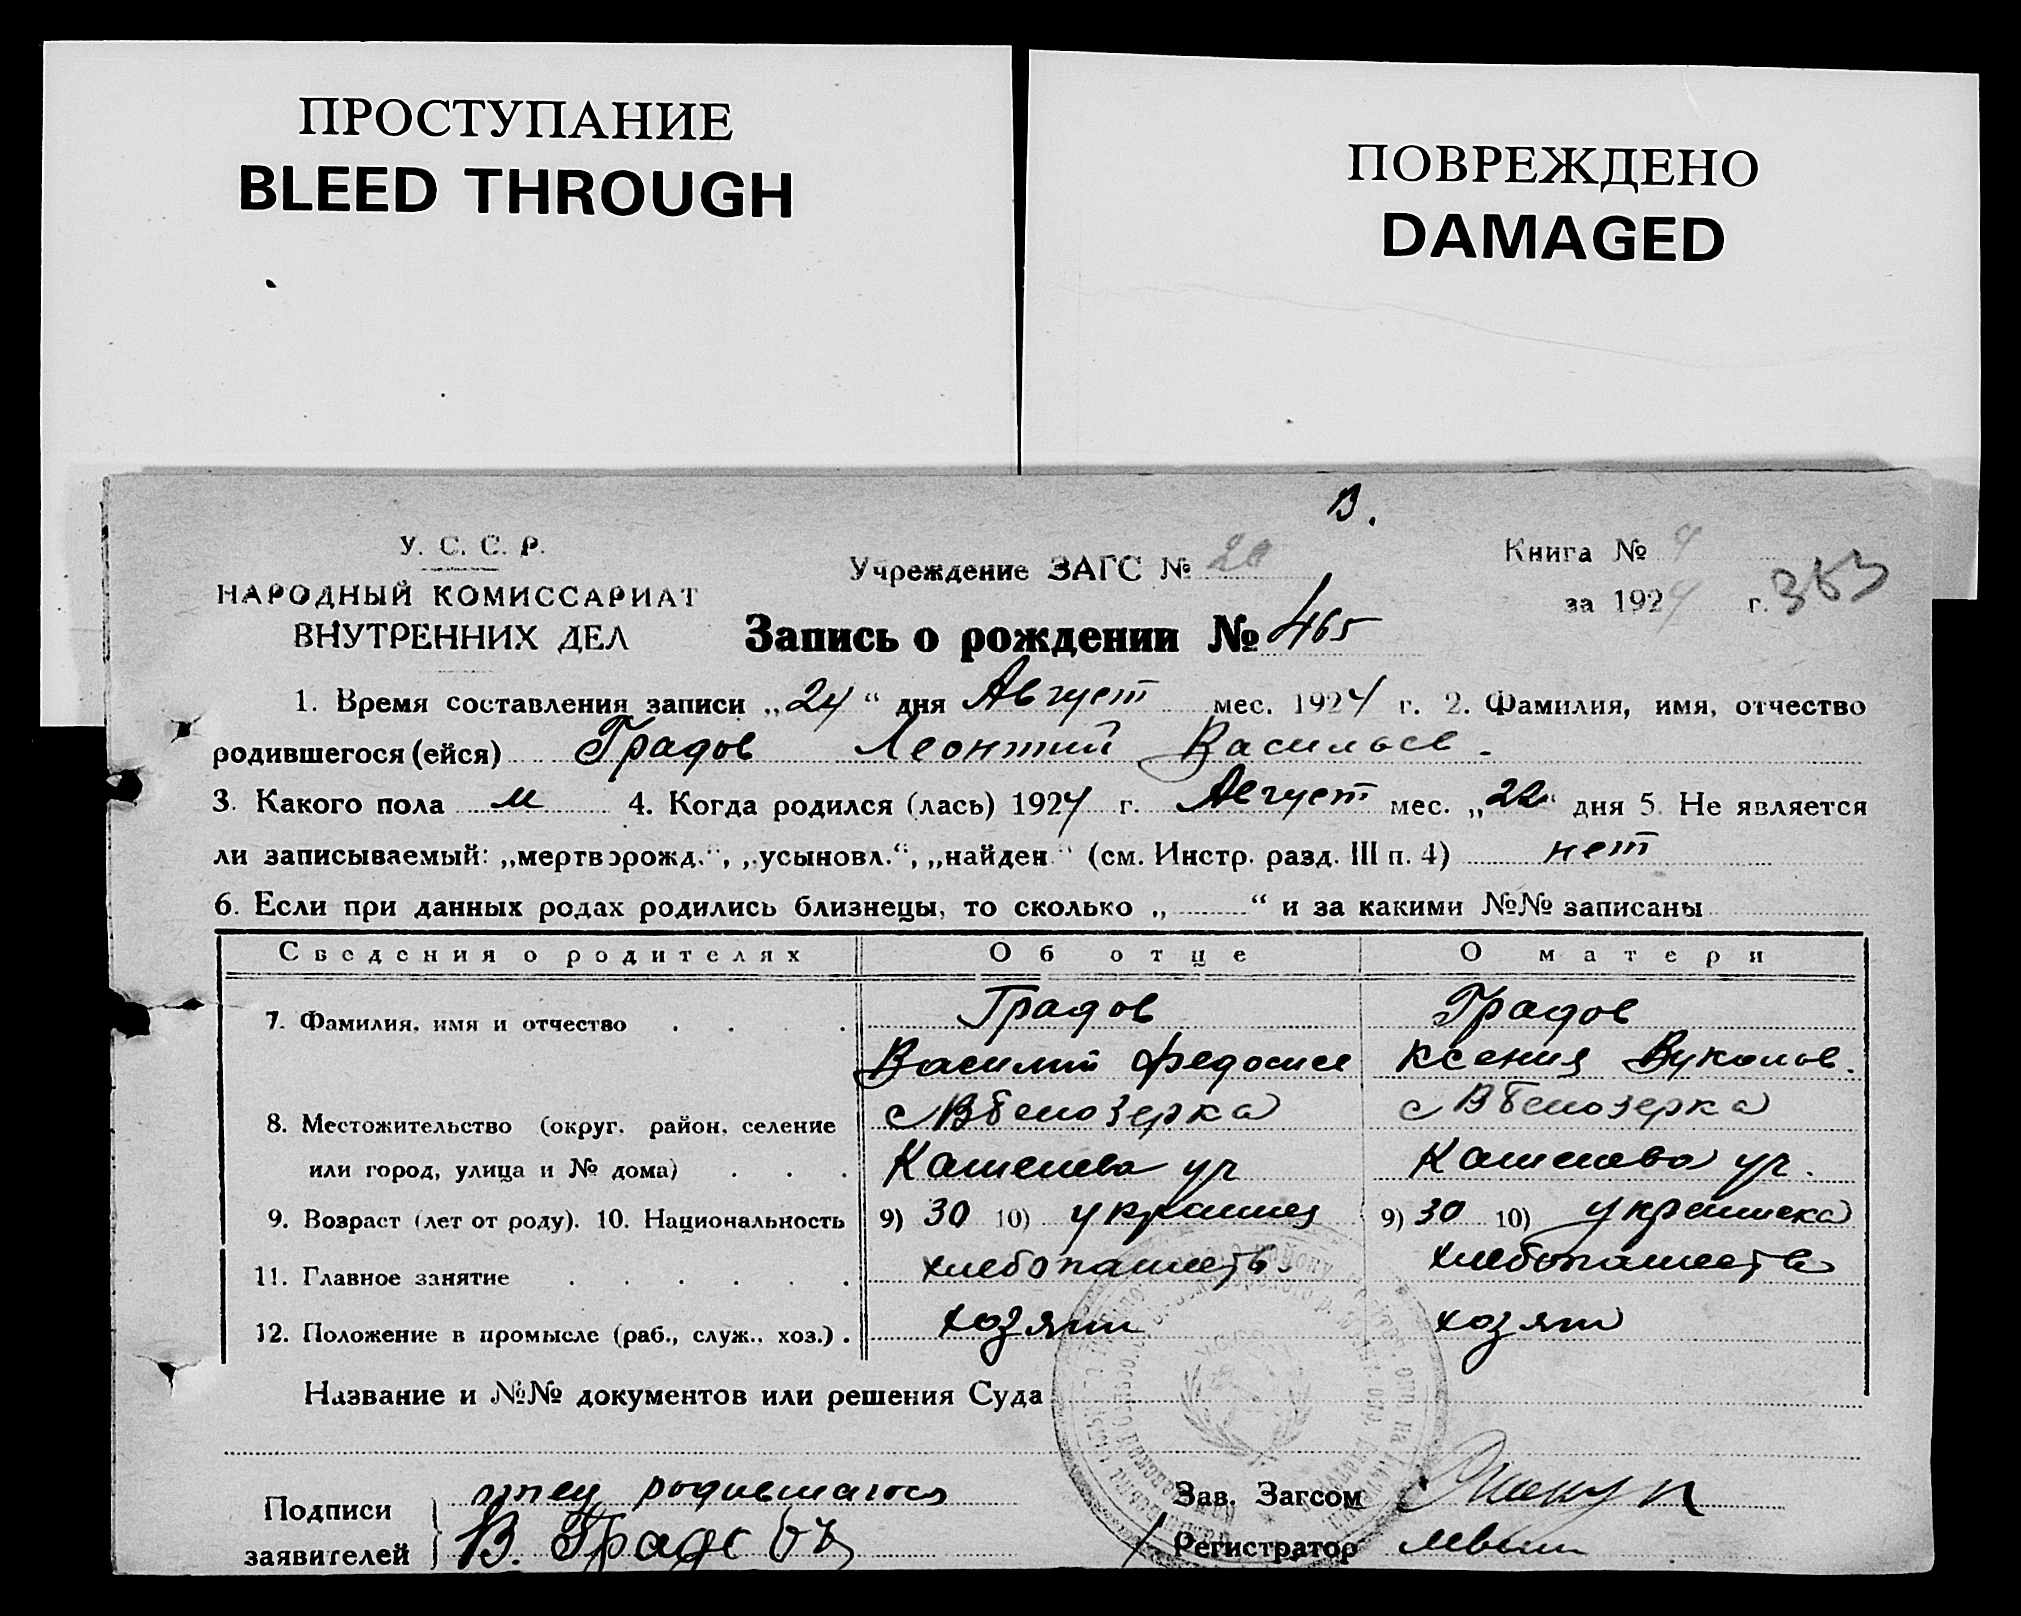 ПРОСТУПАНИЕ
BLEED THROUGH
ПОВРЕЖДЕНО
DAMAGED
В.
У. С. С. Р.
НАРОДНЫЙ КОМИССАРИАТ
ВНУТРЕННИХ ДЕЛ
Учреждение ЗАГС № 20
Книга № 4
за 1924 г. 353
Запись о рождении № 465
1. Время составления записи „24“ дня Август мес. 1924 г. 2. Фамилия, имя, отчество
родившегося (ейся) Градов Леонтий Васильев.
3. Какого пола м 4. Когда родился (лась) 1924 г. Август мес. „22“ дня 5. Не является
ли записываемый: „мертворожд.“, „усыновл.“, „найден“ (см. Инстр. разд. III п. 4) нет
6. Если при данных родах родились близнецы, то сколько „ “ и за какими №№ записаны
Сведения о родителях Об отце О матери
7. Фамилия, имя и отчество . . . . Градов Градов
Василий Федосие Ксения Вуколов.
8. Местожительство (округ, район, селение с В Белозерка с В Белозерка
или город, улица и № дома) . . .
9. Возраст (лет от роду). 10. Национальность 9) 30 10) украинец 9) 30 10) украинека
11. Главное занятие . . . . . . хлебопашеств хлебопашества
12. Положение в промысле (раб., служ., хоз.) . хозяин хозяин
Название и №№ документов или решения Суда
Подписи
заявителей
отец родившагося
В. Градовъ
Зав. Загсом
Регистратор